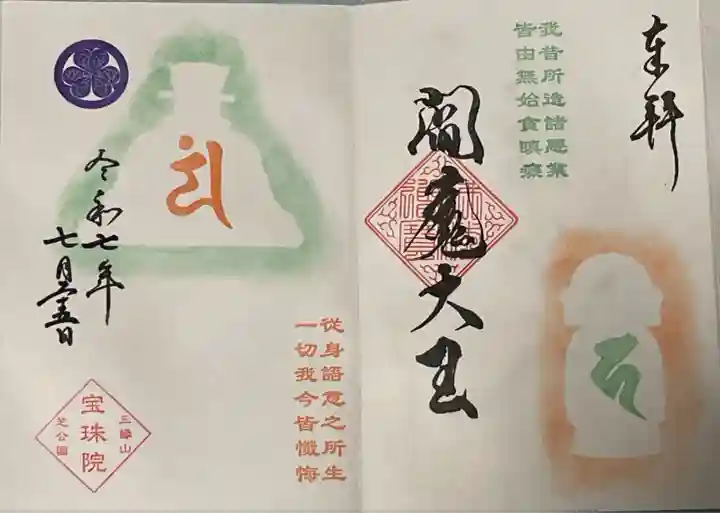 奉拝
我昔所造諸悪業
皆由無始貪瞋癡
閻魔大王
従身語意之所生
一切我今皆懺悔
令和七年
七月二十五日
三縁山
宝珠院
芝公園